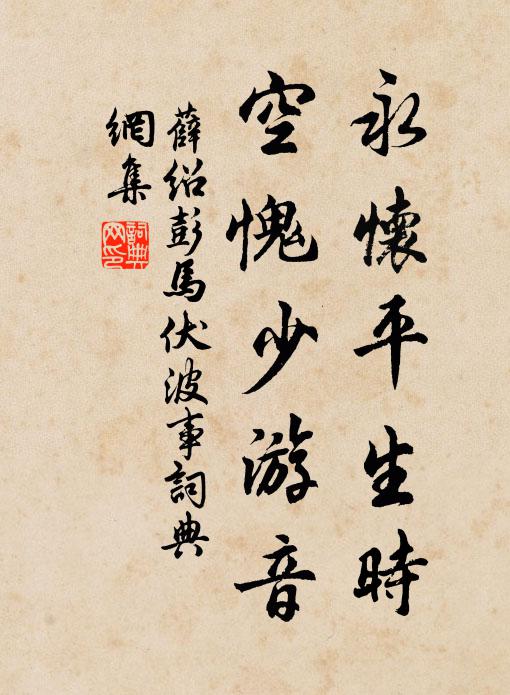 永懷平生時
空愧少游音
薛紹彭馬伏波事詞典
網集
詞典網印